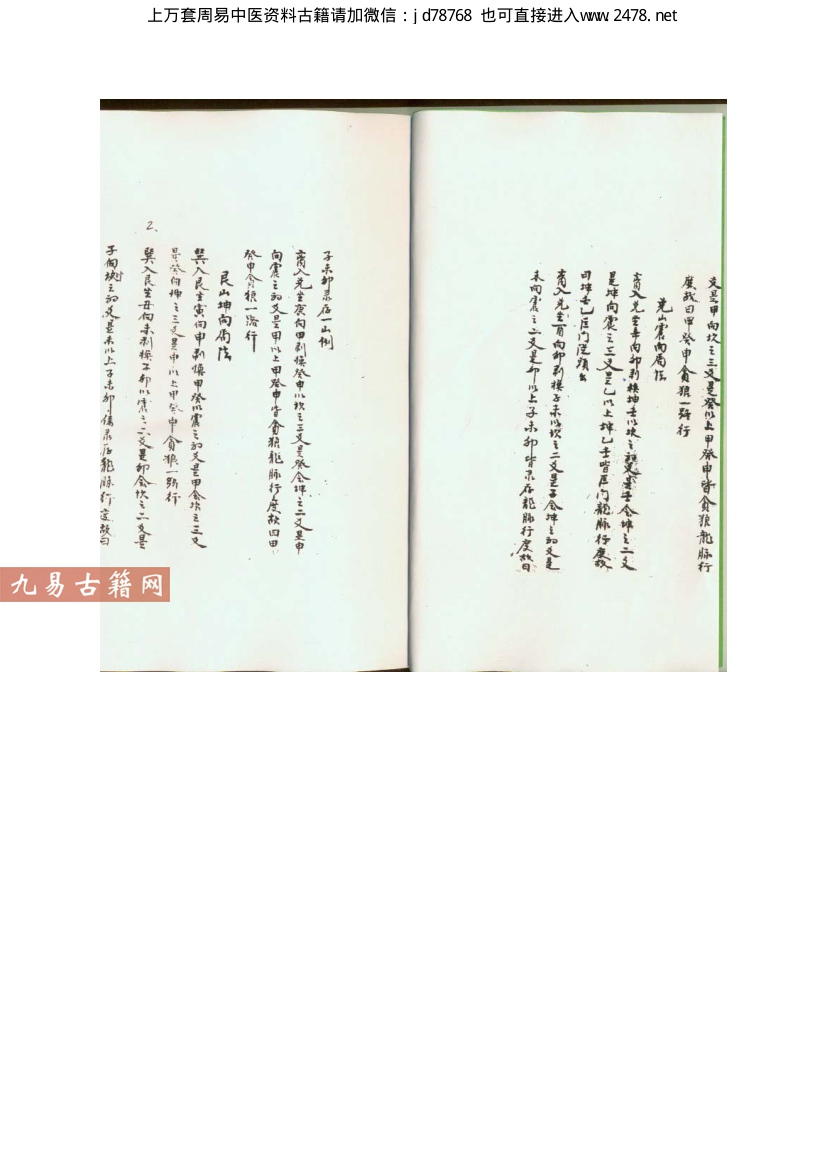 上万套周易中医资料古籍请加微信：jd78768 也可直接进入www.2478.net
爻是甲向坎之三爻是癸以上甲癸申皆貪狼龍脉行
度哉曰甲癸申貪狼一路行
兑山震向局法
入兑坐辛向卯剥換坤壬以坎之初爻是壬会坤之二爻
是坤向震之三爻是乙以上坤乙壬皆巨门龍脉行度故
曰坤壬乙巨门从頭出
入兑坐酉向卯剥換子未以坎之二爻是子会坤之初爻是
未向震之二爻是卯以上子未卯皆录存龍脉行度故曰
子未卯录存一山例
入兑坐庚向甲剥換癸申以坎之三爻是癸会坤之二爻是申
向震之初爻是甲以上甲癸申皆貪狼龍脉行度故曰甲
癸申貪狼一路行
艮山坤向局法
巽入艮坐寅向申剥換甲癸以震之初爻是甲会坎之三爻
是癸向坤之三爻是申以上甲癸申貪狼一路行
2、
巽入艮坐丑向未剥換子卯以震之二爻是卯会坎之二爻是
子向坤之初爻是未以上子未卯录存龍脉行度故曰
九易古籍网